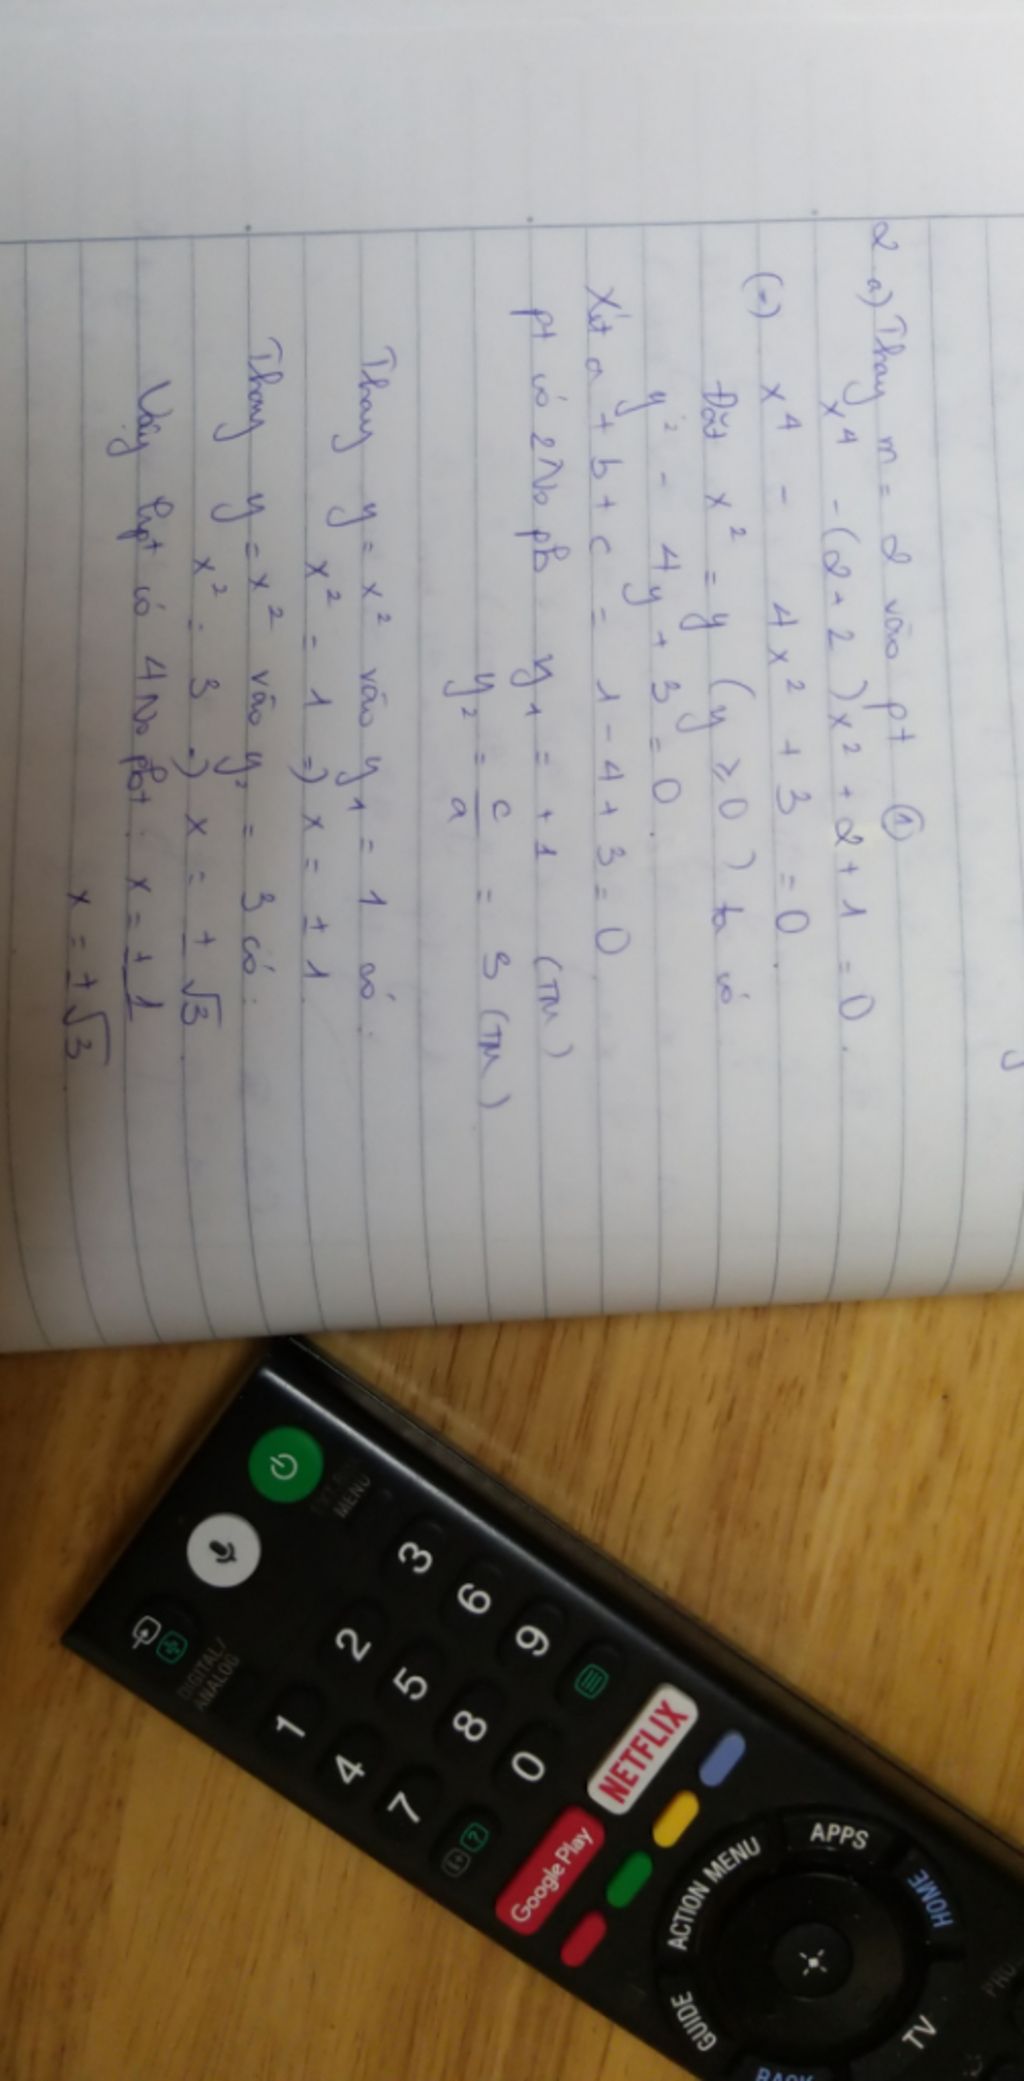 2. a) Thay m = 2 vào pt ①
x⁴ - (2+2)x² + 2+1 = 0.
(=) x⁴ - 4x² + 3 = 0.
Đặt x² = y (y ≥ 0) ta có
y² - 4y + 3 = 0.
Xét a + b + c = 1 - 4 + 3 = 0
pt có 2 No pb y₁ = +1 (TM)
y₂ = c/a = 3 (TM)
Thay y = x² vào y₁ = 1 có:
x² = 1 =) x = ± 1
Thay y = x² vào y₂ = 3 có:
x² = 3 =) x = ± √3.
Vậy pt có 4 No pbt: x = ± 1
x = ± √3
MENU
DIGITAL/
ANALOG
3
6
9
2
5
8
0
1
4
7
NETFLIX
Google Play
ACTION MENU
APPS
HOME
GUIDE
TV
BACK